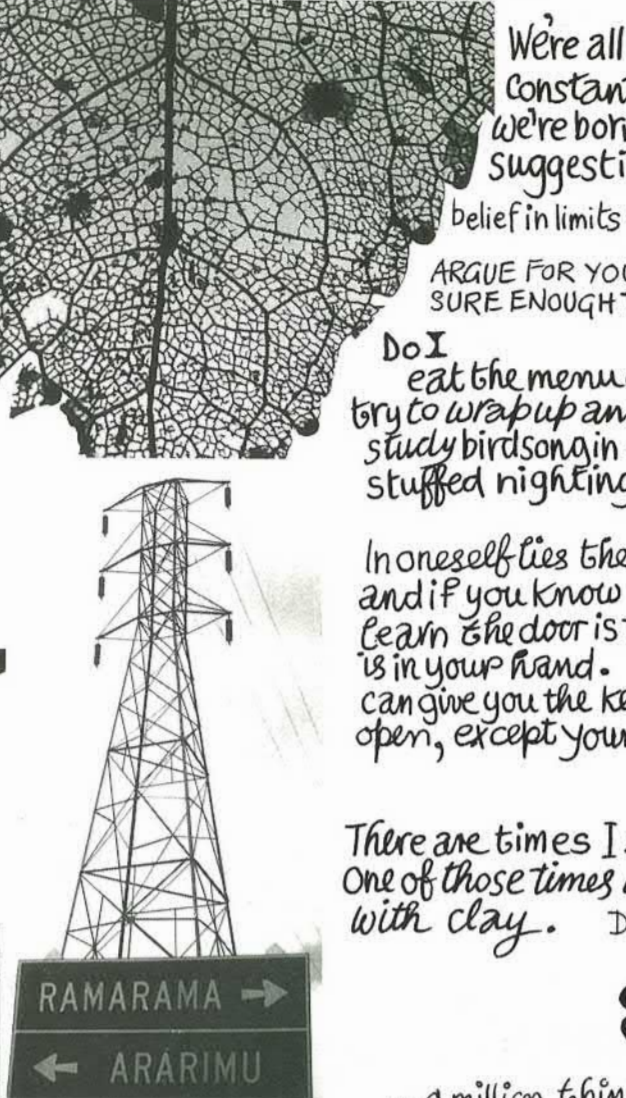 We're all
Constan
we're bor
suggesti
belief in limits
ARGUE FOR YOU
SURE ENOUGH
Do I
eat the menu
try to wrap up an
study birdsong in
stuffed nighting
In oneself lies the
and if you know
learn the door is
is in your hand.
can give you the ke
open, except your
There are times I
One of those times
with clay. D
RAMARAMA →
← ARARIMU
a million thin